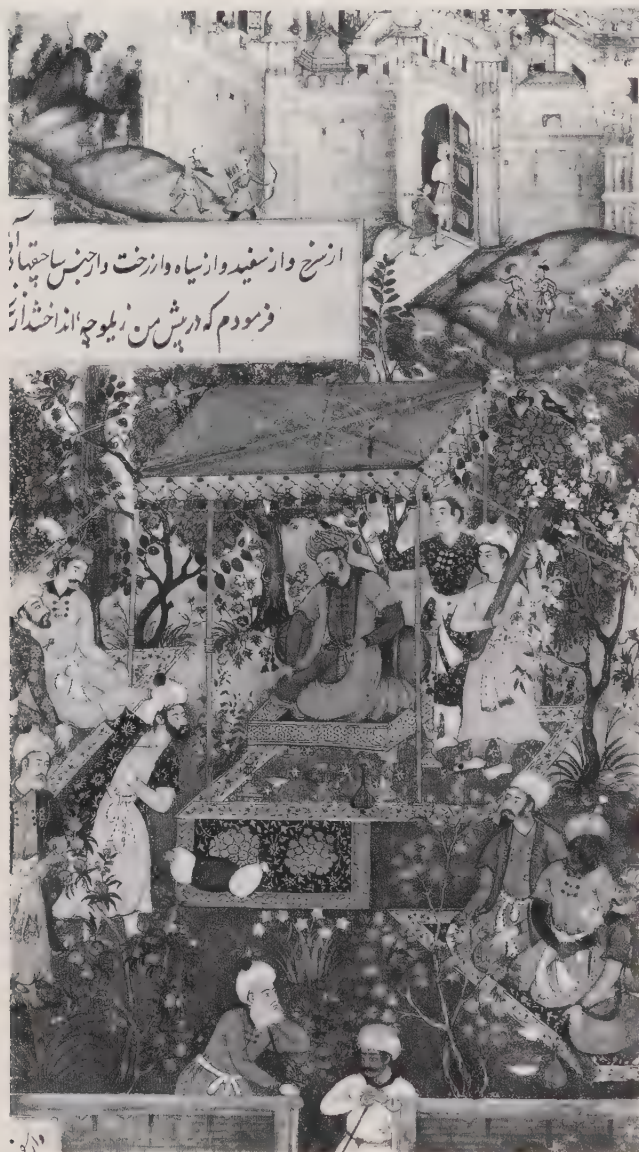 از سرخ و از سفید و از سیاه و از رخت و از جنس ساچقها
فرمودم که در پیش من زیلوچه انداختند از